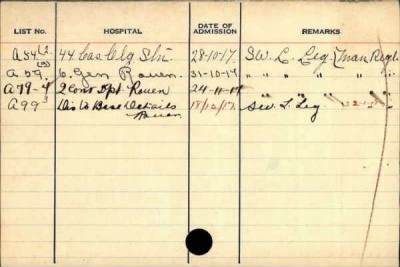 LIST No. HOSPITAL DATE OF ADMISSION REMARKS
A34 (2 44 Cas Clg Stn. 28-10-17. SW. L. Leg (Man Regt.
(3)
A 39. 6. Gen Rouen. 31-10-17 " " " " "
A79-4 2 Con Dpt Rouen 24-11-17 " " " " "
A99 3 Dis to Base Details 18/12/17. SW. L. Leg
Rouen